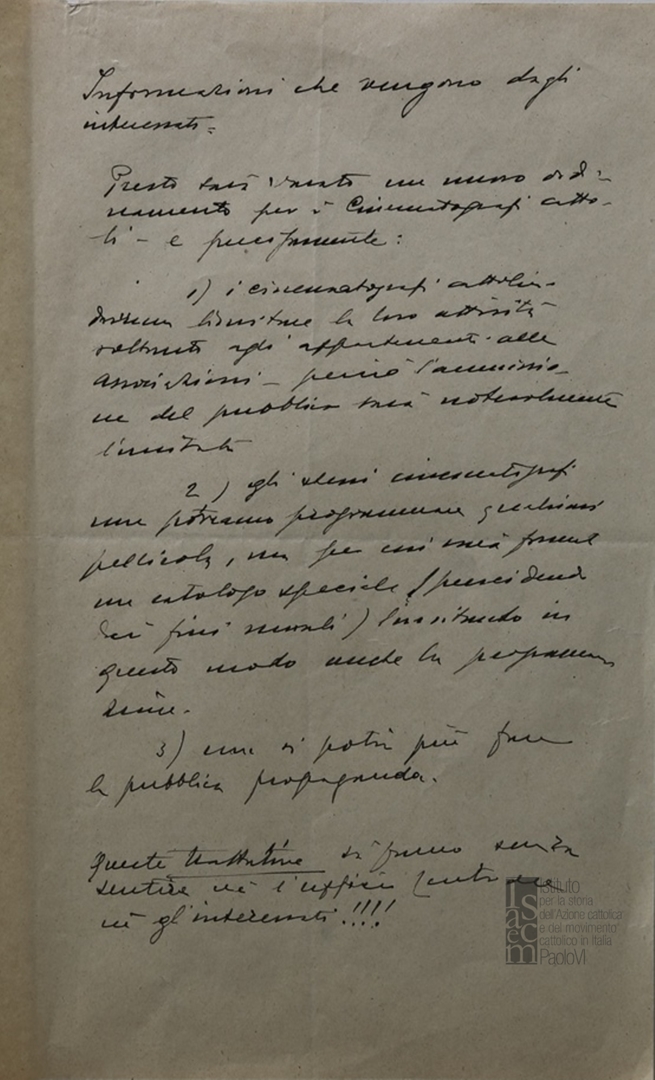 Informazioni che vengono dagli
interessati.
Presto sarà varato un nuovo ordi-
namento per i Cinematografi catto-
li - e precisamente:
1) i cinematografi cattolici
dovranno limitare la loro attività
soltanto agli appartenenti alle
Associazioni - perciò l'ammissio-
ne del pubblico sarà notevolmente
limitata
2) gli stessi cinematografi
non potranno programmare qualsiasi
pellicola, ma per essi sarà formato
un catalogo speciale (prescindendo
dai fini morali) limitando in
questo modo anche la programma-
zione.
3) non si potrà più fare
la pubblica propaganda.
Queste trattative si fanno senza
sentire nè l'ufficio
nè gl'interessati!!!!
Isacem
Istituto
per la storia
dell'Azione cattolica
e del movimento
cattolico in Italia
PaoloVI